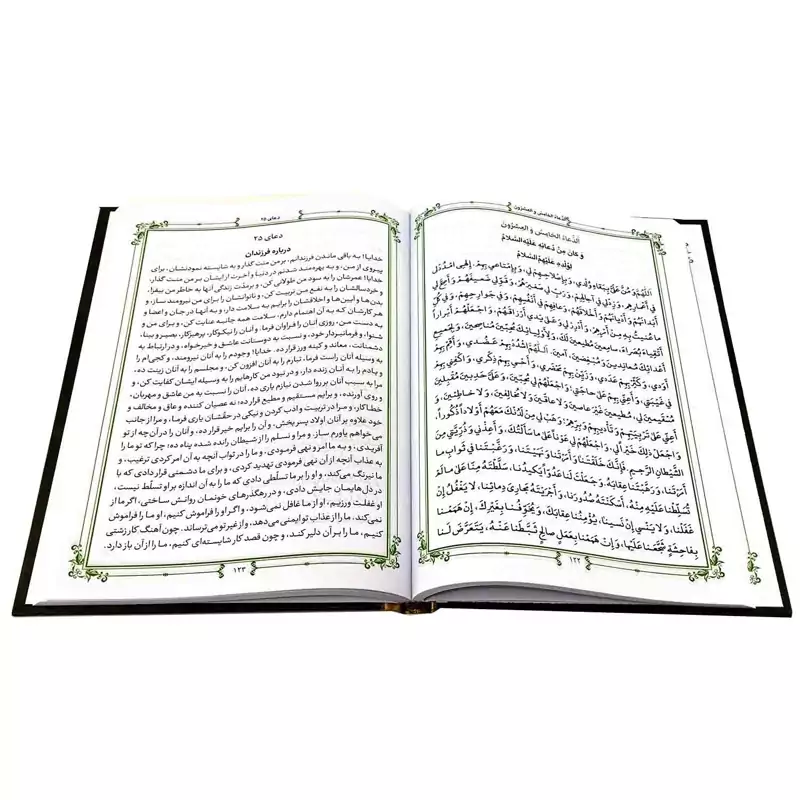 الدعاء الخامس و العشرون
الدُّعَاءُ الْخَامِسُ وَ الْعِشْرُونَ
وَ كَانَ مِنْ دُعَائِهِ عَلَيْهِ السَّلَامُ
لِوُلْدِهِ عَلَيْهِمُ السَّلَامُ
اَللّٰهُمَّ وَ مُنَّ عَلَيَّ بِبَقَاءِ وُلْدِي، وَ بِإِصْلَاحِهِمْ لِي، وَ بِإِمْتَاعِي بِهِمْ. إِلَهِي امْدُدْ لِي
فِي أَعْمَارِهِمْ، وَ زِدْ لِي فِي آجَالِهِمْ، وَ رَبِّ لِي صَغِيرَهُمْ، وَ قَوِّ لِي ضَعِيفَهُمْ، وَ أَصِحَّ لِي
أَبْدَانَهُمْ وَ أَدْيَانَهُمْ وَ أَخْلَاقَهُمْ، وَ عَافِهِمْ فِي أَنْفُسِهِمْ وَ فِي جَوَارِحِهِمْ وَ فِي كُلِّ
مَا عُنِيتُ بِهِ مِنْ أَمْرِهِمْ، وَ أَدْرِرْ لِي وَ عَلَى يَدِي أَرْزَاقَهُمْ. وَ اجْعَلْهُمْ أَبْرَاراً
أَتْقِيَاءَ بُصَرَاءَ سَامِعِينَ مُطِيعِينَ لَكَ، وَ لِأَوْلِيَائِكَ مُحِبِّينَ مُنَاصِحِينَ، وَ لِجَمِيعِ
أَعْدَائِكَ مُعَانِدِينَ وَ مُبْغِضِينَ، آمِينَ. اَللّٰهُمَّ اشْدُدْ بِهِمْ عَضُدِي، وَ أَقِمْ بِهِمْ
أَوَدِي، وَ كَثِّرْ بِهِمْ عَدَدِي، وَ زَيِّنْ بِهِمْ مَحْضَرِي، وَ أَحْيِ بِهِمْ ذِكْرِي، وَ اكْفِنِي بِهِمْ
فِي غَيْبَتِي، وَ أَعِنِّي بِهِمْ عَلَى حَاجَتِي، وَ اجْعَلْهُمْ لِي مُحِبِّينَ، وَ عَلَيَّ حَدِبِينَ مُقْبِلِينَ
مُسْتَقِيمِينَ لِي، مُطِيعِينَ غَيْرَ عَاصِينَ وَ لَا عَاقِّينَ وَ لَا مُخَالِفِينَ وَ لَا خَاطِئِينَ. وَ
أَعِنِّي عَلَى تَرْبِيَتِهِمْ وَ تَأْدِيبِهِمْ وَ بِرِّهِمْ، وَ هَبْ لِي مِنْ لَدُنْكَ مَعَهُمْ أَوْلَاداً ذُكُوراً،
وَ اجْعَلْ ذَلِكَ خَيْراً لِي، وَ اجْعَلْهُمْ لِي عَوْناً عَلَى مَا سَأَلْتُكَ. وَ أَعِذْنِي وَ ذُرِّيَّتِي مِنَ
الشَّيْطَانِ الرَّجِيمِ، فَإِنَّكَ خَلَقْتَنَا وَ أَمَرْتَنَا وَ نَهَيْتَنَا، وَ رَغَّبْتَنَا فِي ثَوَابِ مَا
أَمَرْتَنَا، وَ رَهَّبْتَنَا عِقَابَهُ، وَ جَعَلْتَ لَنَا عَدُوّاً يَكِيدُنَا، سَلَّطْتَهُ مِنَّا عَلَى مَا لَمْ
تُسَلِّطْنَا عَلَيْهِ مِنْهُ، أَسْكَنْتَهُ صُدُورَنَا، وَ أَجْرَيْتَهُ مَجَارِيَ دِمَائِنَا، لَا يَغْفُلُ إِنْ
غَفَلْنَا، وَ لَا يَنْسَى إِنْ نَسِينَا، يُؤْمِنُنَا عِقَابَكَ، وَ يُخَوِّفُنَا بِغَيْرِكَ. إِنْ هَمَمْنَا
بِفَاحِشَةٍ شَجَّعَنَا عَلَيْهَا، وَ إِنْ هَمَمْنَا بِعَمَلٍ صَالِحٍ ثَبَّطَنَا عَنْهُ، يَتَعَرَّضُ لَنَا
۱۲۲
دعای ۲۵
دعای ۲۵
درباره فرزندان
خدایا! به باقی ماندن فرزندانم، بر من منت گذار و به شایسته نمودنشان، برای
پیروی از من، و به بهره‌مند شدنم در دنیا و آخرت از ایشان بر من منت گذار.
خدایا! عمرشان را به سود من طولانی کن، و بر مدّت زندگی آنها به خاطر من بیفزا،
و خردسالشان را به نفع من تربیت کن، و ناتوانشان را برای من نیرومند ساز، و
بدن‌ها و آیین‌ها و اخلاقشان را برایم به سلامت دار، و به آنها در جان و اعضا و
هر کارشان که به آن اهتمام دارم، سلامت همه جانبه عنایت کن، و برای من و
به دست من، روزی آنان را فراوان فرما، و آنان را نیکوکار، پرهیزکار، بصیر و بینا،
شنوا، و فرمانبردار خود، و نسبت به دوستانت عاشق و خیرخواه، و در ارتباط به
دشمنانت، معاند و کینه ورز قرار ده. خدایا! وجودم را به آنان نیرومند، و کجی‌ام را
به وسیله آنان راست فرما، تبارم را به آنان افزون کن، و مجلسم را به آنان زینت ده،
و یادم را به آنان زنده دار، و در نبود من کارهایم را به وسیله ایشان کفایت کن، و
مرا به سبب آنان بر روا شدن نیازم یاری ده، آنان را نسبت به من عاشق و مهربان،
و روی آورنده، و برایم مستقیم و مطیع قرار ده؛ نه عصیان کننده و عاق و مخالف و
خطاکار، و مرا در تربیت و ادب کردن و نیکی در حقشان یاری فرما، و از جانب
خود علاوه بر آنان اولاد پسر بخش، و آن را برایم خیر قرار ده، و آنان را در آن‌چه از تو
می‌خواهم یاورم ساز. و مرا و نسلم را از شیطان رانده شده پناه ده؛ چرا که تو ما را
آفریدی، و به ما امر و نهی فرمودی، و ما را در ثواب آنچه به آن امر کردی ترغیب، و
به عذاب آنچه از آن نهی فرمودی تهدید کردی، و برای ما دشمنی قرار دادی که با
ما نیرنگ می‌کند، و او را بر ما تسلّطی دادی که ما را به آن اندازه بر او تسلّط نیست،
در دل‌هایمان جایش دادی، و در رهگذرهای خونمان روانش ساختی، اگر ما از
او غفلت ورزیم، او از ما غافل نمی‌شود، و اگر او را فراموش کنیم، او ما را فراموش
نمی‌کند، ما را از عذاب تو ایمنی می‌دهد، و از غیر تو می‌ترساند. چون آهنگ کار زشتی
کنیم، ما را بر آن دلیر کند، و چون قصد کار شایسته‌ای کنیم، ما را از آن باز دارد.
۱۲۳